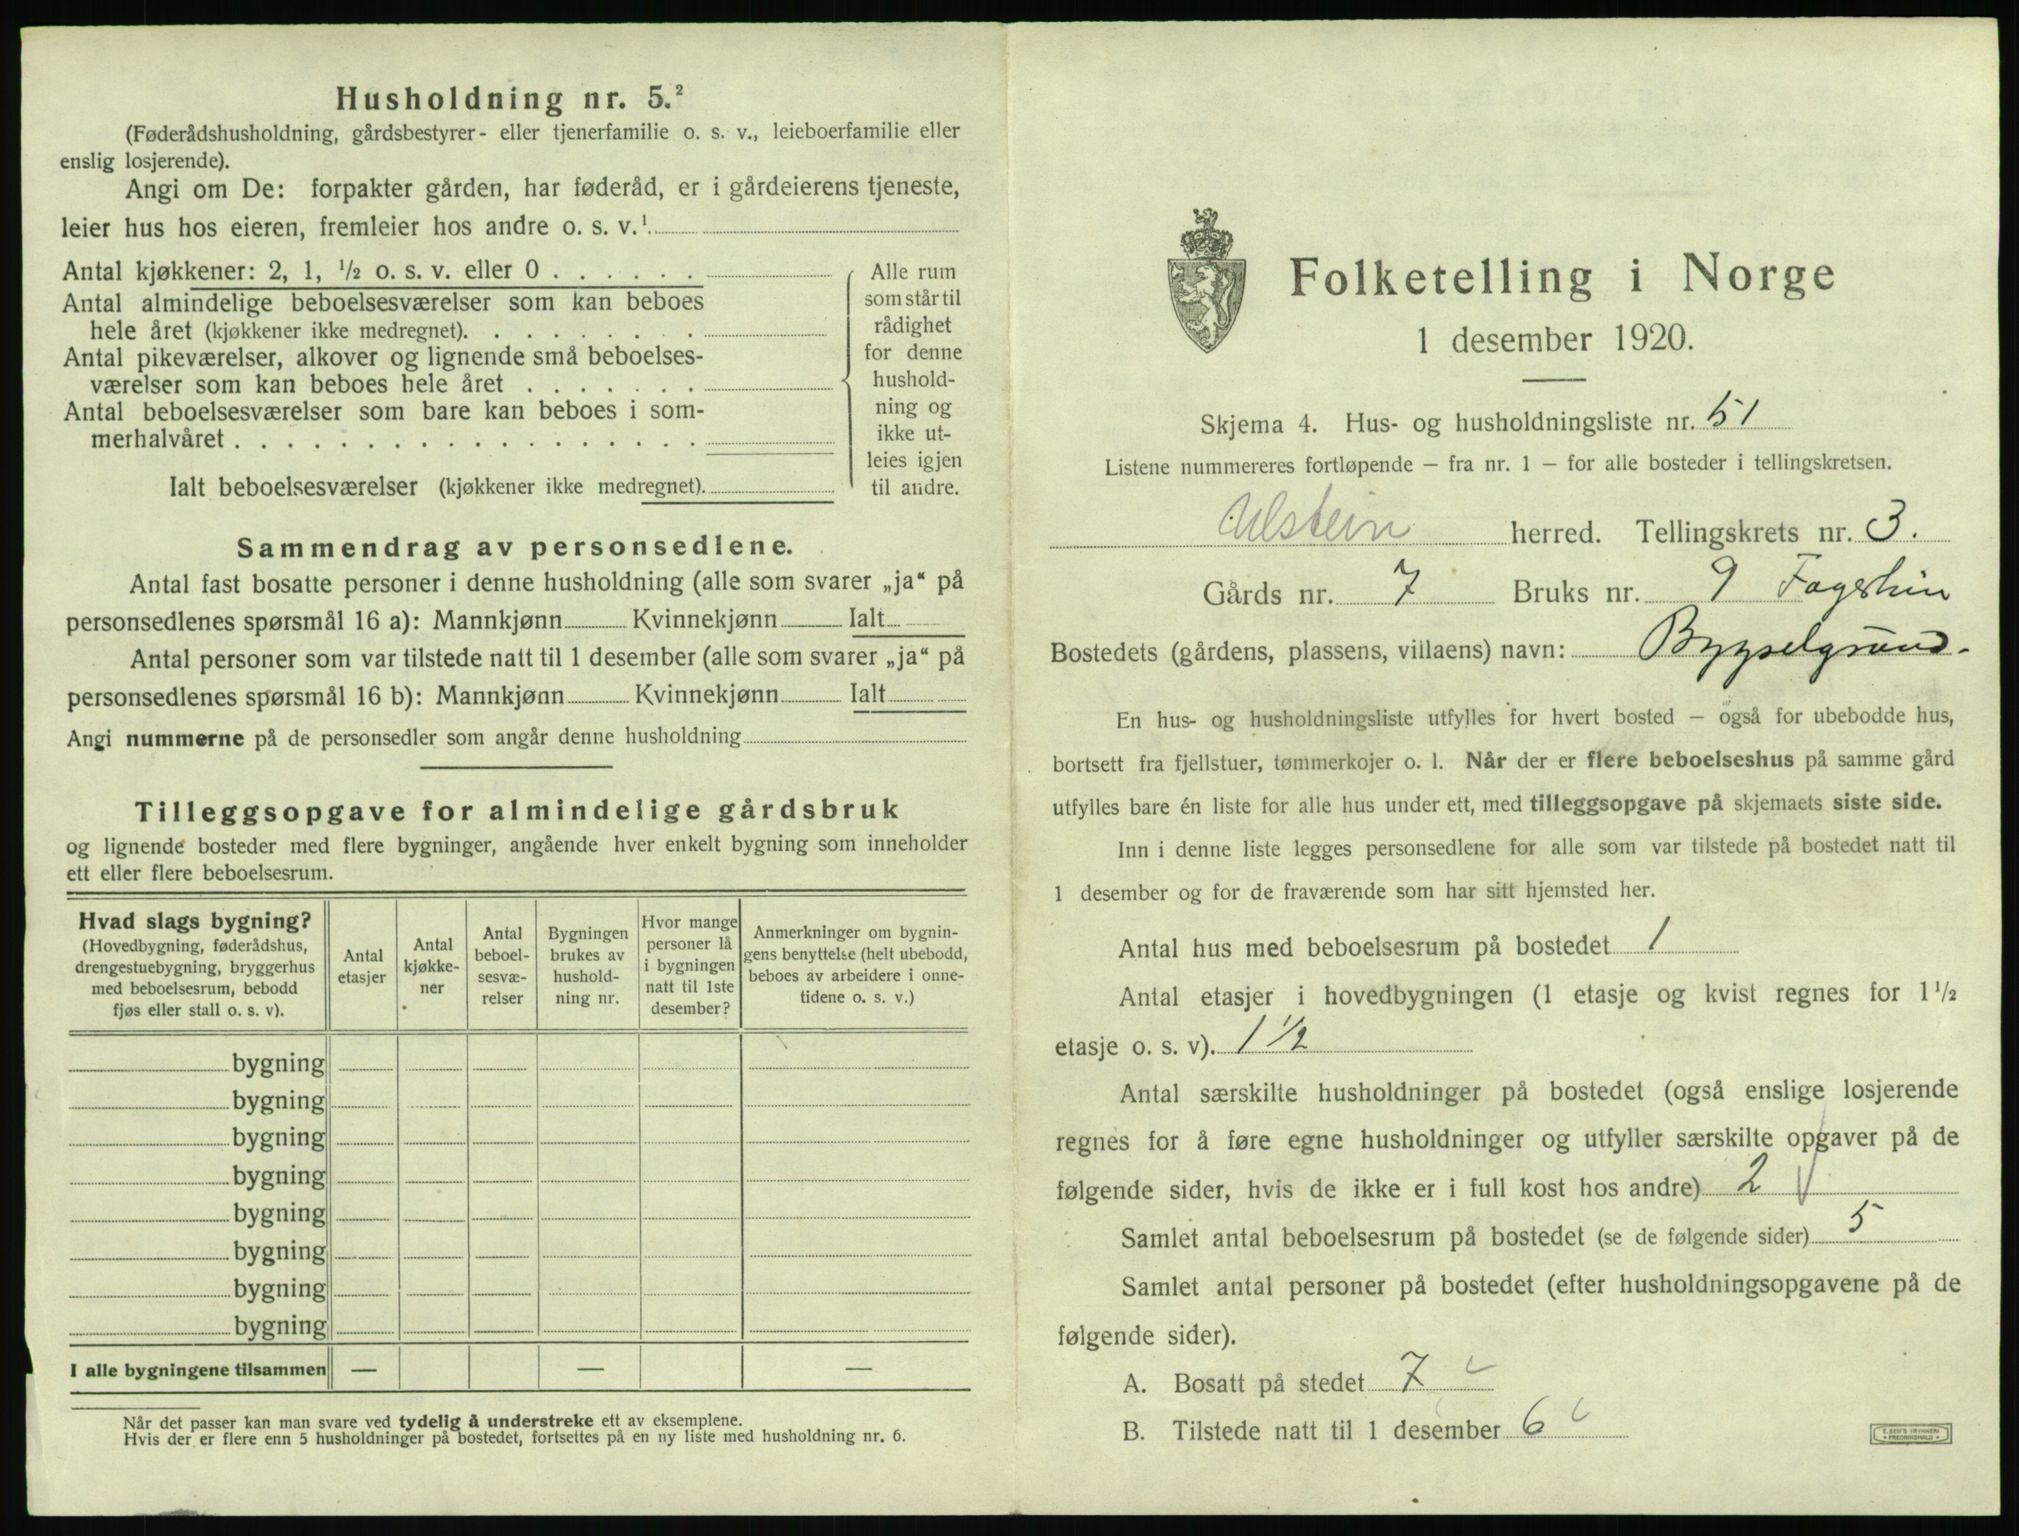 Husholdning nr. 5.²
(Føderådshusholdning, gårdsbestyrer- eller tjenerfamilie o. s. v., leieboerfamilie eller
enslig losjerende).
Angi om De: forpakter gården, har føderåd, er i gårdeierens tjeneste,
leier hus hos eieren, fremleier hos andre o. s. v.¹
Antal kjøkkener: 2, 1, ½ o. s. v. eller 0 . . . . . .
Antal almindelige beboelsesværelser som kan beboes
hele året (kjøkkener ikke medregnet). . . . . . . .
Antal pikeværelser, alkover og lignende små beboelses-
værelser som kan beboes hele året . . . . . . .
Antal beboelsesværelser som bare kan beboes i som-
merhalvåret . . . . . . . . . . . . . . . . . .
Ialt beboelsesværelser (kjøkkener ikke medregnet).
Alle rum
som står til
rådighet
for denne
hushold-
ning og
ikke ut-
leies igjen
til andre.
Sammendrag av personsedlene.
Antal fast bosatte personer i denne husholdning (alle som svarer „ja“ på
personsedlenes spørsmål 16 a): Mannkjønn Kvinnekjønn Ialt
Antal personer som var tilstede natt til 1 desember (alle som svarer „ja“ på
personsedlenes spørsmål 16 b): Mannkjønn Kvinnekjønn Ialt
Angi nummerne på de personsedler som angår denne husholdning
Tilleggsopgave for almindelige gårdsbruk
og lignende bosteder med flere bygninger, angående hver enkelt bygning som inneholder
ett eller flere beboelsesrum.
Hvad slags bygning?
(Hovedbygning, føderådshus,
drengestuebygning, bryggerhus
med beboelsesrum, bebodd
fjøs eller stall o. s. v).
Antal
etasjer
Antal
kjøkke-
ner
Antal
beboel-
sesvæ-
relser
Bygningen
brukes av
hushold-
ning nr.
Hvor mange
personer lå
i bygningen
natt til 1ste
desember?
Anmerkninger om bygnin-
gens benyttelse (helt ubebodd,
beboes av arbeidere i onne-
tidene o. s. v.)
bygning
bygning
bygning
bygning
bygning
bygning
bygning
bygning
I alle bygningene tilsammen — — —
Når det passer kan man svare ved tydelig å understreke ett av eksemplene.
Hvis der er flere enn 5 husholdninger på bostedet, fortsettes på en ny liste med husholdning nr. 6.
Folketelling i Norge
1 desember 1920.
Skjema 4. Hus- og husholdningsliste nr. 51
Listene nummereres fortløpende — fra nr. 1 — for alle bosteder i tellingskretsen.
Ulstein herred. Tellingskrets nr. 3.
Gårds nr. 7 Bruks nr. 9 Fagerlim
Bostedets (gårdens, plassens, villaens) navn: Bygselgrund.
En hus- og husholdningsliste utfylles for hvert bosted — også for ubebodde hus,
bortsett fra fjellstuer, tømmerkojer o. l. Når der er flere beboelseshus på samme gård
utfylles bare én liste for alle hus under ett, med tilleggsopgave på skjemaets siste side.
Inn i denne liste legges personsedlene for alle som var tilstede på bostedet natt til
1 desember og for de fraværende som har sitt hjemsted her.
Antal hus med beboelsesrum på bostedet 1
Antal etasjer i hovedbygningen (1 etasje og kvist regnes for 1½
etasje o. s. v). 1½
Antal særskilte husholdninger på bostedet (også enslige losjerende
regnes for å føre egne husholdninger og utfyller særskilte opgaver på de
følgende sider, hvis de ikke er i full kost hos andre) 2
Samlet antal beboelsesrum på bostedet (se de følgende sider) 5
Samlet antal personer på bostedet (efter husholdningsopgavene på de
følgende sider).
A. Bosatt på stedet 7
B. Tilstede natt til 1 desember 6